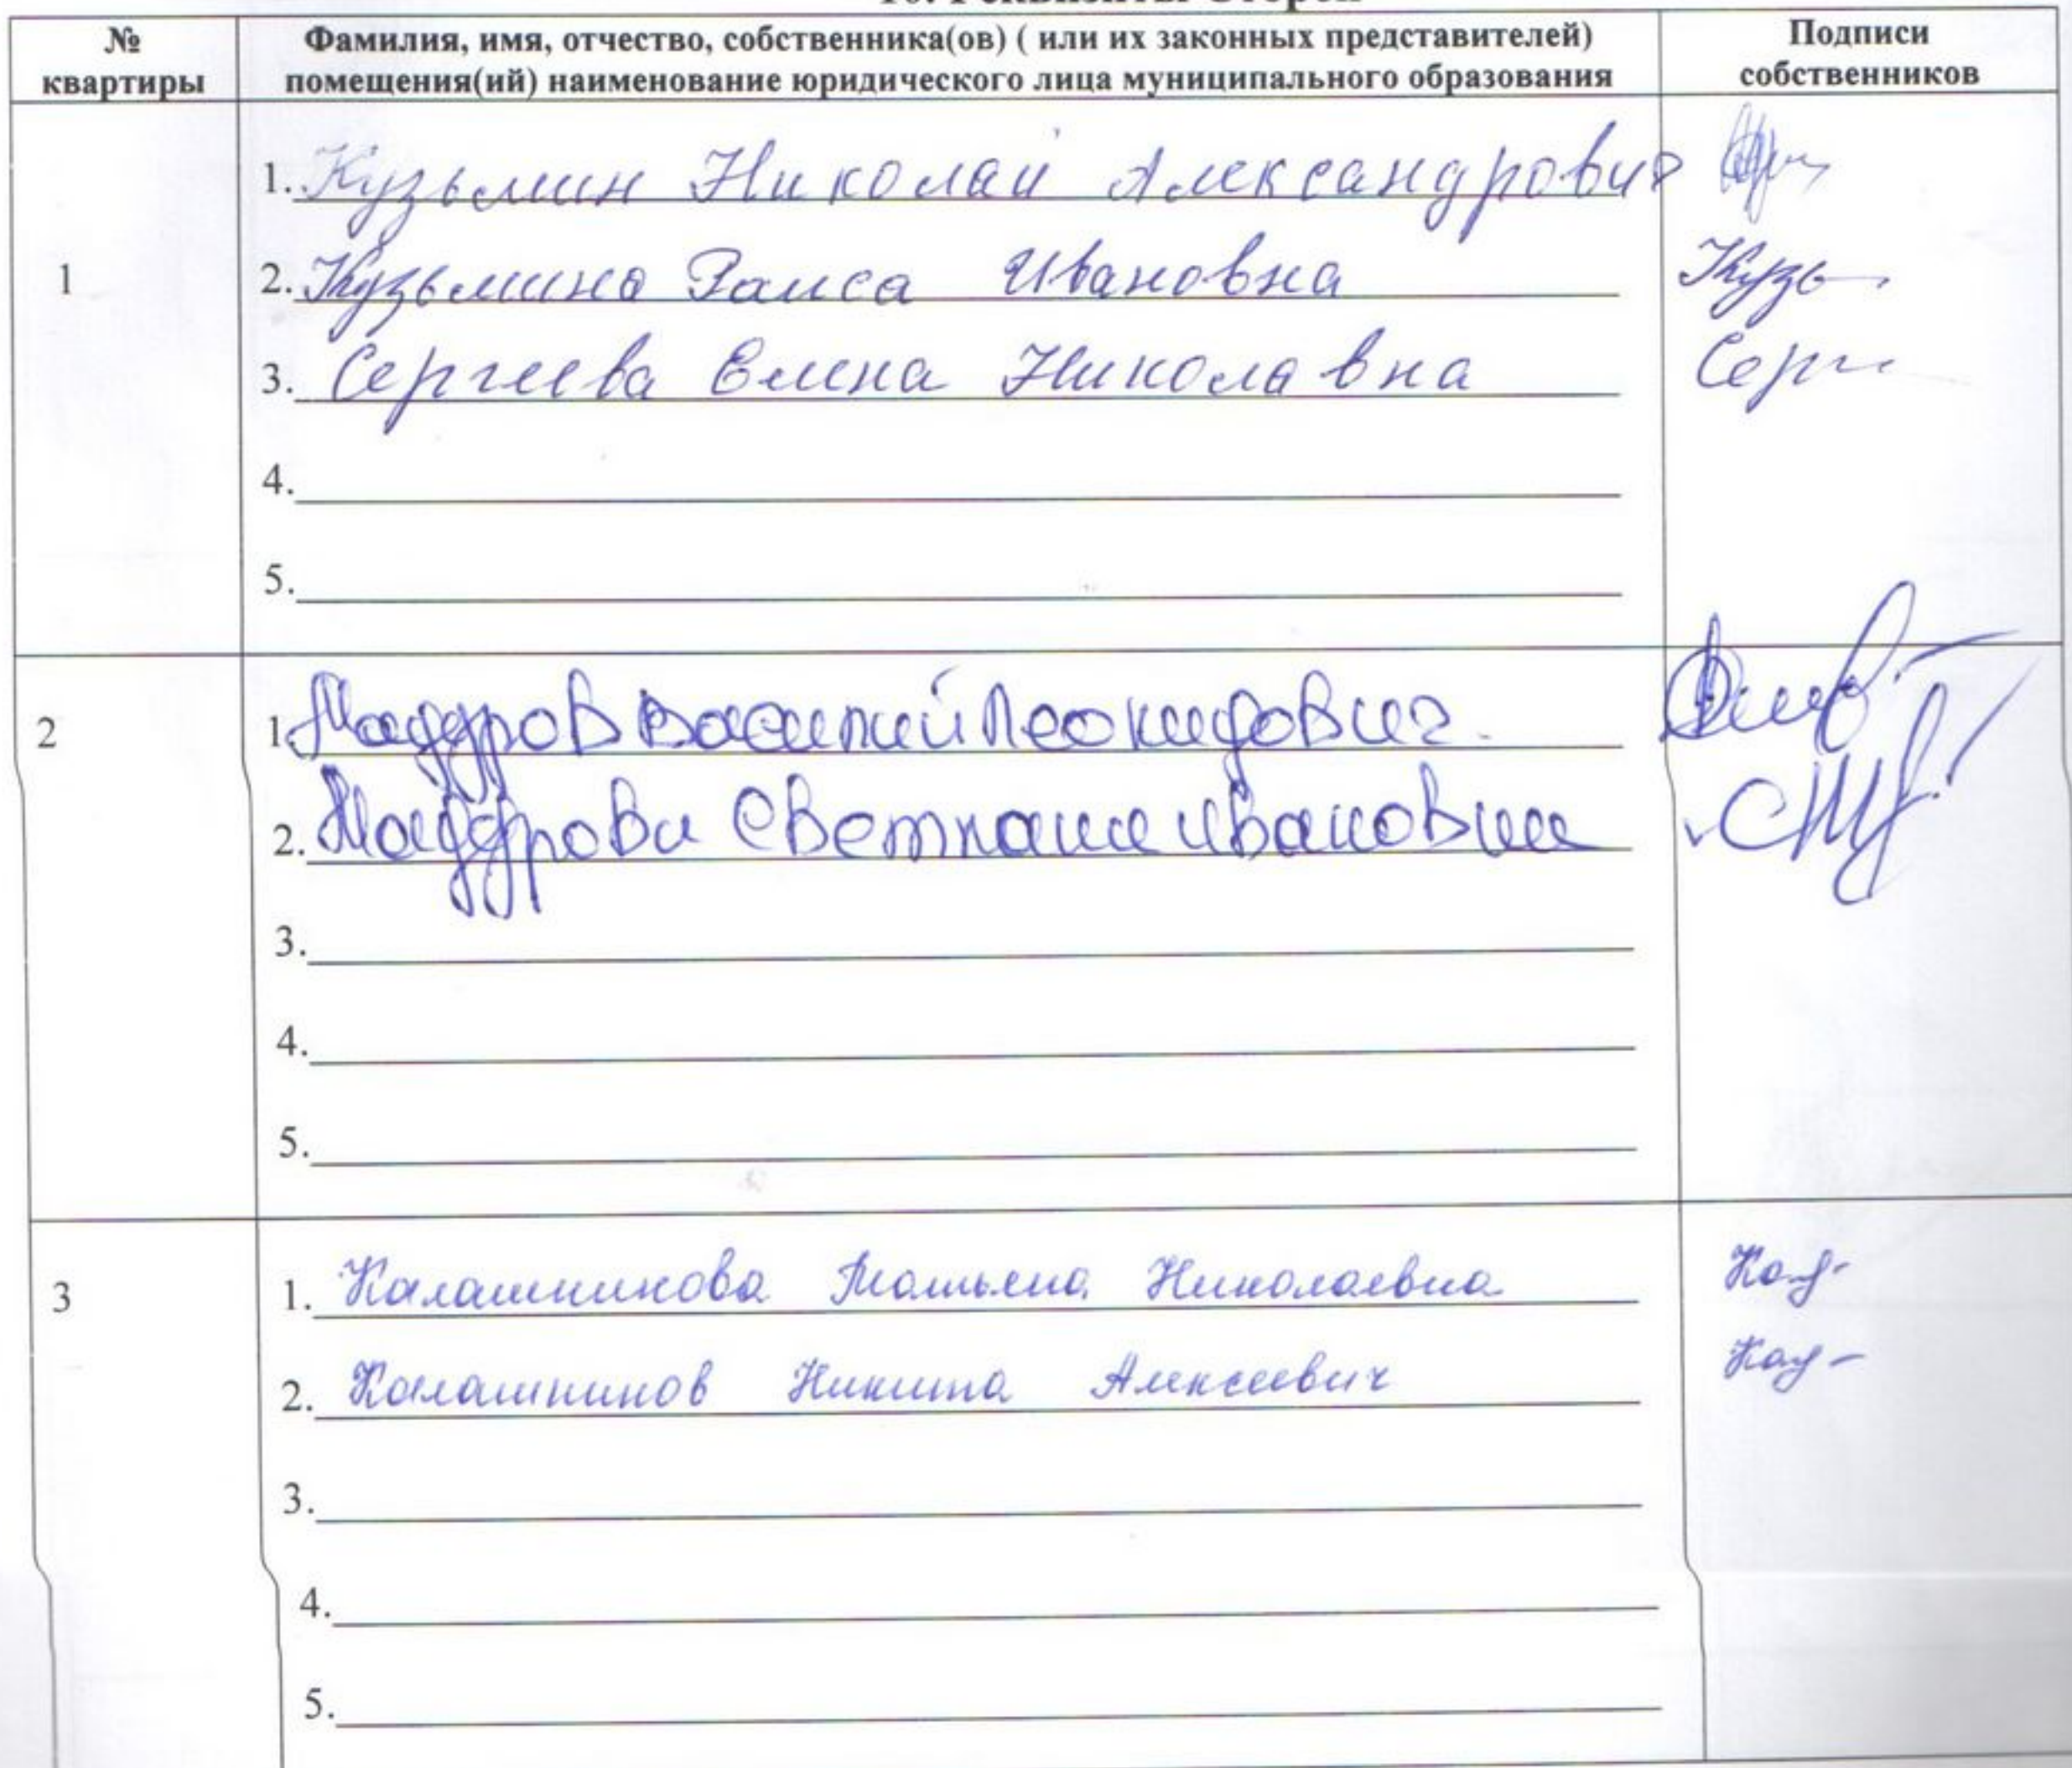 № квартиры
Фамилия, имя, отчество, собственника(ов) ( или их законных представителей)
помещения(ий) наименование юридического лица муниципального образования
Подписи
собственников
1
1. Кузьмин Николай Александрович
2. Кузьмина Раиса Ивановна Кузь
3. Сергеева Елена Николавна Серг
4.
5.
2
1. Василий Леонидович.
2. Светлана Ивановна
3.
4.
5.
3
1. Калашникова Татьяна Николаевна
2. Калашников Никита Алексеевич
3.
4.
5.